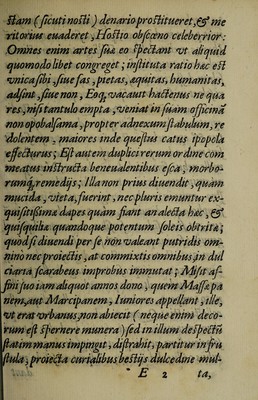 stam (sicuti nosti) denario prostitueret, & me
ritorius euaderet, Hostio obscœno celeberrior:
Omnes enim artes sua eo spectant vt aliquid
quomodo libet congreget; instituta ratio hac est
vnica sibi, siue fas, pietas, aequitas, humanitas,
adsint, siue non, Eoq́; vacaut hactenus ne qua
res, nisi tantulo empta, veniat in suam officinā
non opobalsama, propter adnexum stabulum, re
dolentem, maiores inde questus catus ipopola
effecturus; Est autem duplici rerum ordine com
meatus instructa beneualentibus esca, morbo-
rumq́; remedijs; Illa non prius diuendit, quam
mucida, vieta, fuerint, nec pluris emuntur ex-
quisitissima dapes quàm fiant analecta hac, &
quisquilia quandoque potentum soleis obtrita;
quod si diuendi per se non valeant putridis om-
nino nec proiectis, at commixtis omnibus, in dul
ciaria scarabeus improbus immutat; Misit af-
fini suo iam aliquot annos dono, quem Massa pa
nem, aut Marcipanem, Iuniores appellant, ille,
vt erat vrbanus, non abiecit (neque enim deco-
rum est spernere munera) sed in illum despectū
statim manus impingit, distrahit, partitur in fru
stula, proiecta curialibus bestijs dulcedine mul-
E 2 ta,